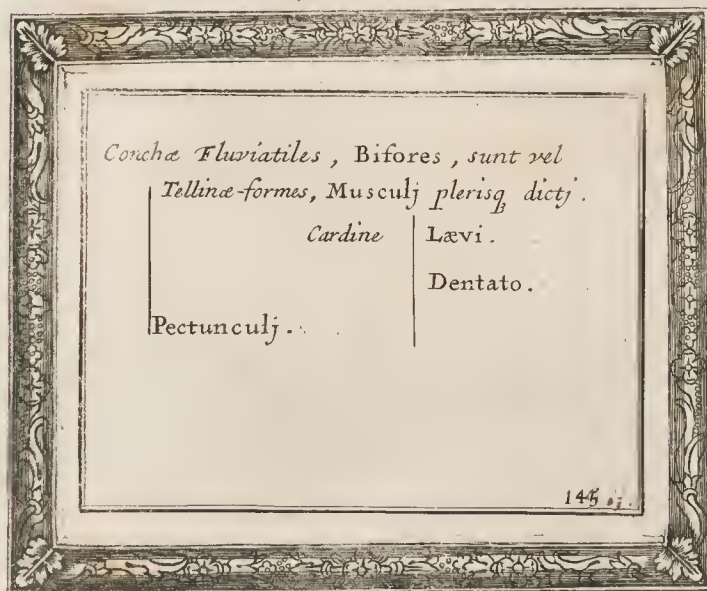 Conchæ Fluviatiles, Bifores, sunt vel
Tellinæ-formes, Musculj plerisqꝫ dictj.
Cardine Lævi.
Dentato.
Pectunculj.
145